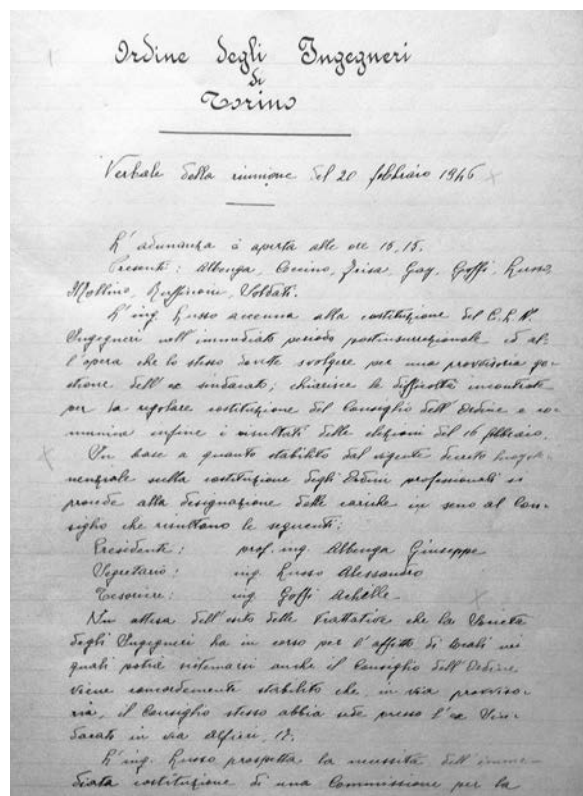 Ordine degli Ingegneri
di
Torino
Verbale della riunione del 20 febbraio 1946
L'adunanza è aperta alle ore 15,15.
Presenti: Albenga, Frisa, Gay, Goffi, Lusso,
Mollino, Ruffinoni, Soldati.
L'ing. Lusso accenna alla costituzione del C.L.N.
Ingegneri nell'immediato periodo postinsurrezionale ed al-
l'opera che lo stesso dovette svolgere per una provvisoria ge-
stione dell'ex sindacato; chiarisce le difficoltà incontrate
per la regolare costituzione del Consiglio dell'Ordine e co-
munica infine i risultati delle elezioni del 16 febbraio.
In base a quanto stabilito dal vigente decreto luogote-
nenziale sulla costituzione degli Ordini professionali si
procede alla designazione delle cariche in seno al Con-
siglio che risultano le seguenti:
Presidente: prof. ing. Albenga Giuseppe
Segretario: ing. Lusso Alessandro
Tesoriere: ing. Goffi Achille
In attesa dell'esito delle trattative che la Società
degli Ingegneri ha in corso per l'affitto di locali nei
quali potrà sistemarsi anche il Consiglio dell'Ordine
viene concordemente stabilito che, in via provviso-
ria, il Consiglio stesso abbia sede presso l'ex Sin-
dacato in via Alfieri, 17.
L'ing. Lusso prospetta la necessità dell'imme-
diata costituzione di una Commissione per la